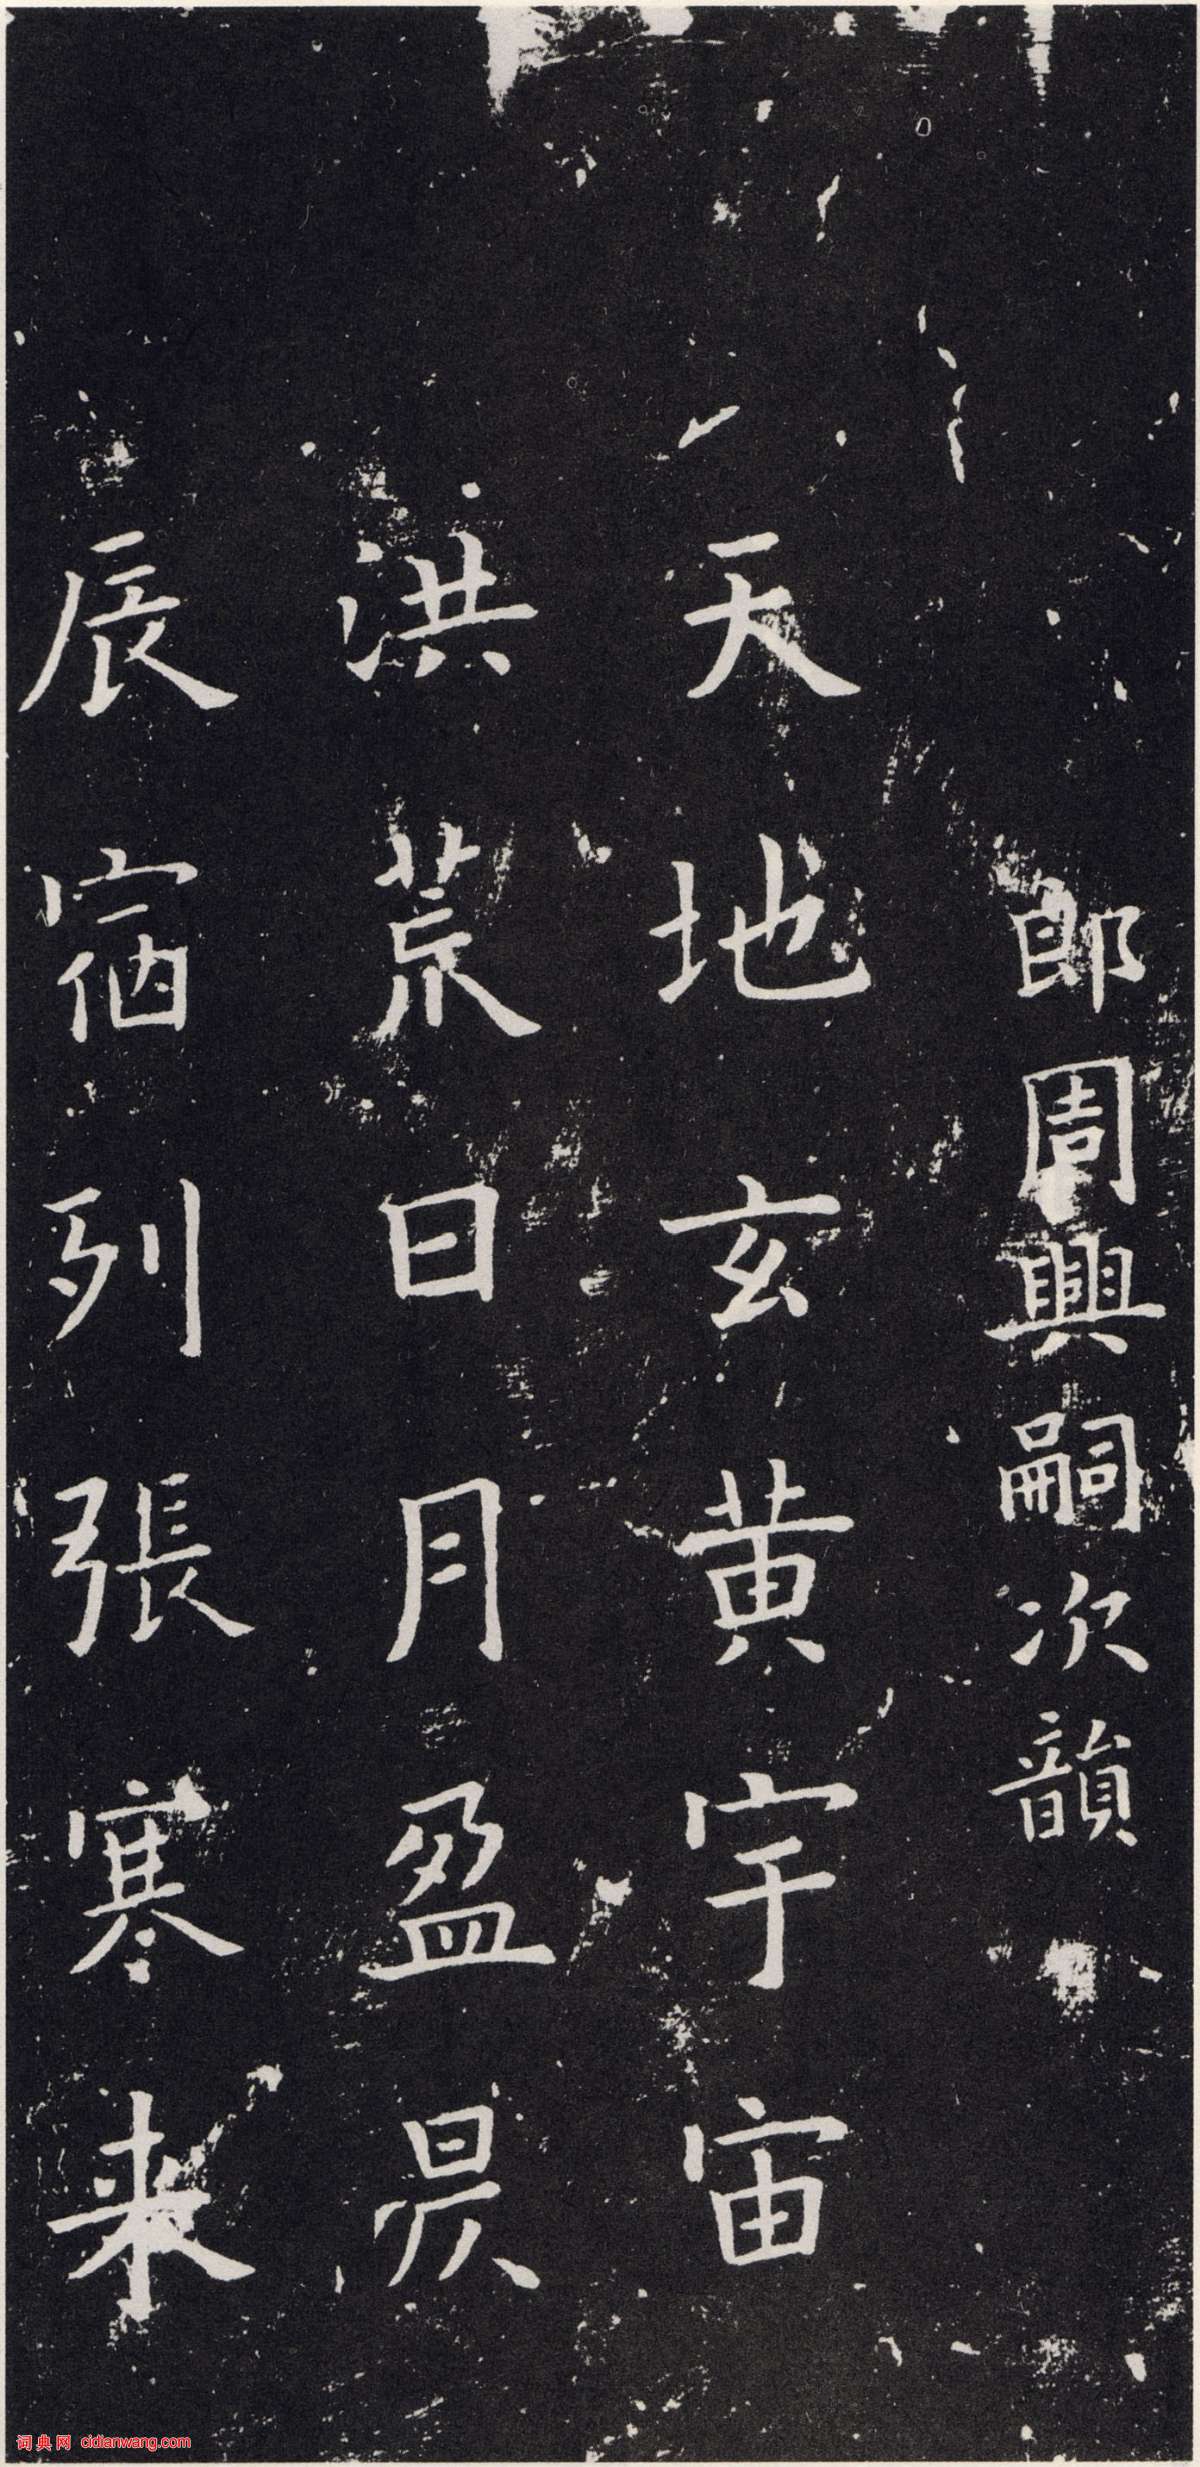 郎周興嗣次韻
天地玄黄宇宙
洪荒日月盈昃
辰宿列張寒来
词典网 cidianwang.com